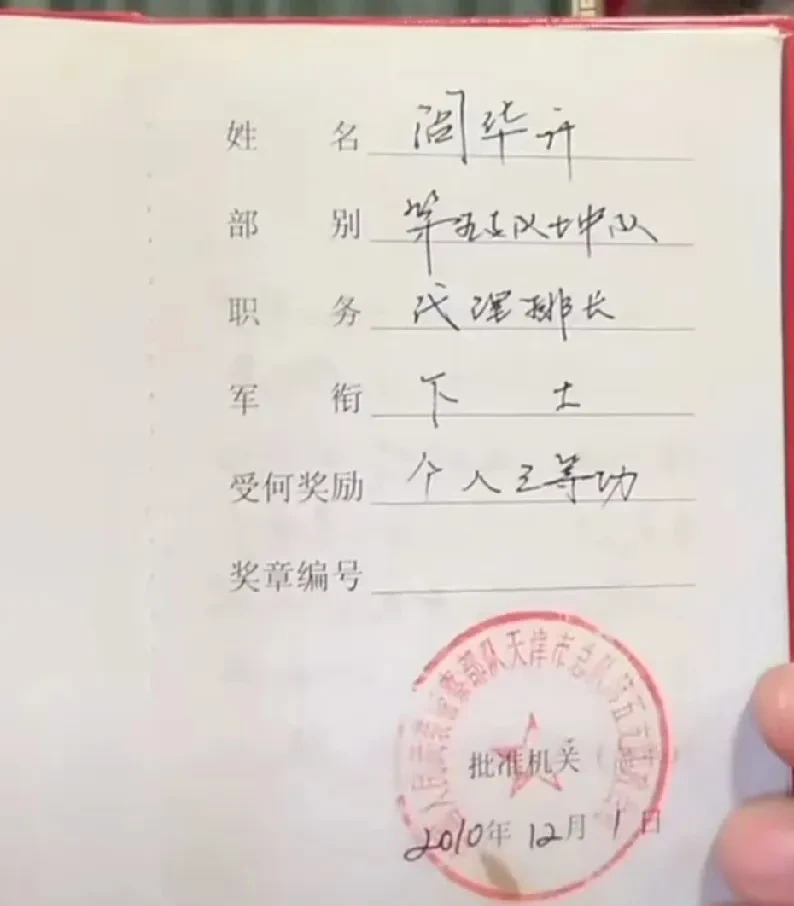 姓名 闫华许
部别 第五支队七中队
职务 代理排长
军衔 下士
受何奖励 个人三等功
奖章编号
人民武装警察部队天津市总队第五支队
批准机关（ ）
2010年12月1日